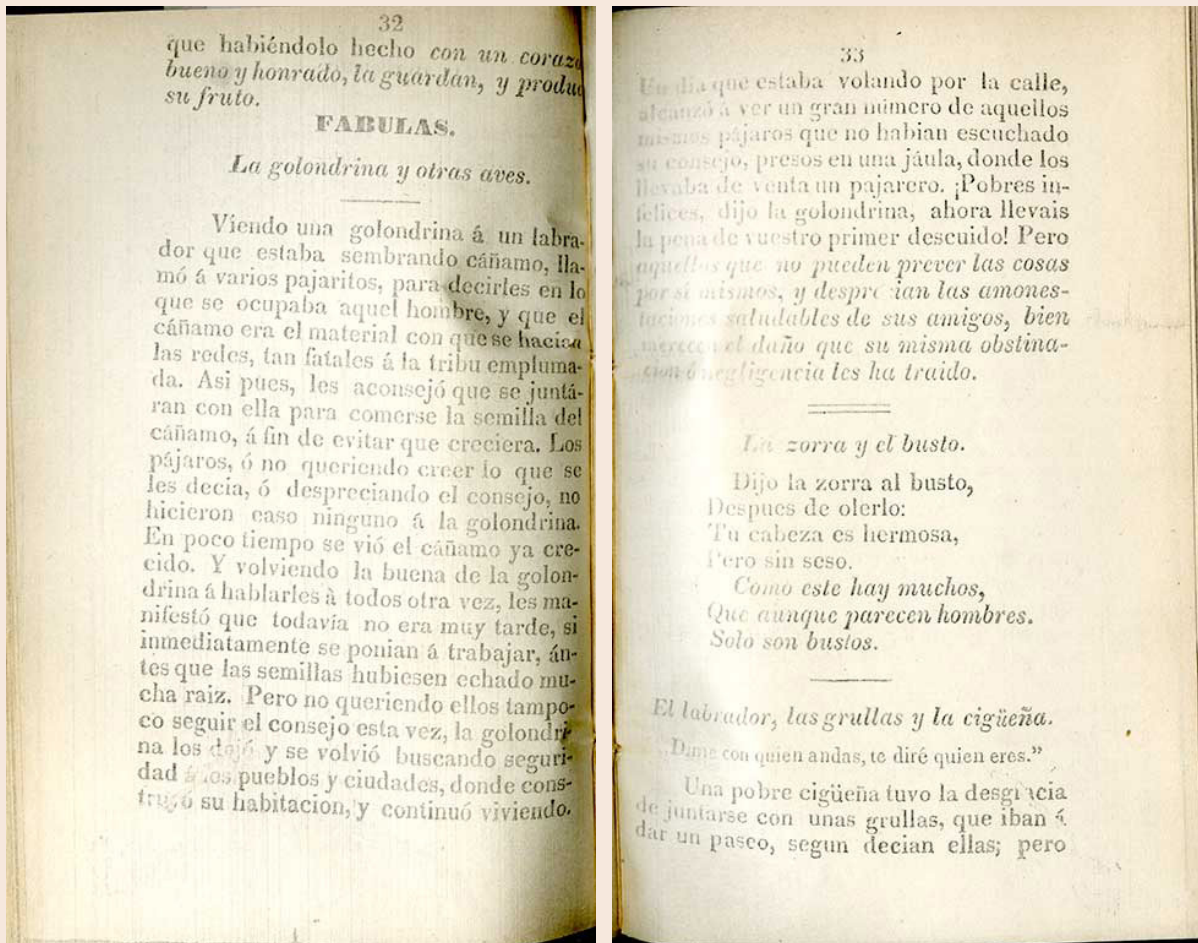 32
que habiéndolo hecho con un corazo
bueno y honrado, la guardan, y produc
su fruto.
FABULAS.
La golondrina y otras aves.
Viendo una golondrina á un labra-
dor que estaba sembrando cáñamo, lla-
mó á varios pajaritos, para decirles en lo
que se ocupaba aquel hombre, y que el
cáñamo era el material con que se hacian
las redes, tan fatales á la tribu empluma-
da. Asi pues, les aconsejó que se juntá-
ran con ella para comerse la semilla del
cáñamo, á fin de evitar que creciera. Los
pájaros, ó no queriendo creer lo que se
les decia, ó despreciando el consejo, no
hicieron caso ninguno á la golondrina.
En poco tiempo se vió el cáñamo ya cre-
cido. Y volviendo la buena de la golon-
drina á hablarles à todos otra vez, les ma-
nifestó que todavía no era muy tarde, si
inmediatamente se ponian á trabajar, án-
tes que las semillas hubiesen echado mu-
cha raiz. Pero no queriendo ellos tampo-
co seguir el consejo esta vez, la golondri-
na los dejó y se volvió buscando seguri-
dad á los pueblos y ciudades, donde cons-
truyó su habitacion, y continuó viviendo.
33
Un dia que estaba volando por la calle,
alcanzó á ver un gran número de aquellos
mismos pájaros que no habian escuchado
su consejo, presos en una jáula, donde los
llevaba de venta un pajarero. ¡Pobres in-
felices, dijo la golondrina, ahora llevais
la pena de vuestro primer descuido! Pero
aquellos que no pueden prever las cosas
por sí mismos, y desprecian las amones-
taciones saludables de sus amigos, bien
merecen el daño que su misma obstina-
cion ó negligencia les ha traido.
La zorra y el busto.
Dijo la zorra al busto,
Despues de olerlo:
Tu cabeza es hermosa,
Pero sin seso.
Como este hay muchos,
Que aunque parecen hombres.
Solo son bustos.
El labrador, las grullas y la cigüeña.
„Dime con quien andas, te diré quien eres.”
Una pobre cigüeña tuvo la desgracia
de juntarse con unas grullas, que iban á
dar un paseo, segun decian ellas; pero